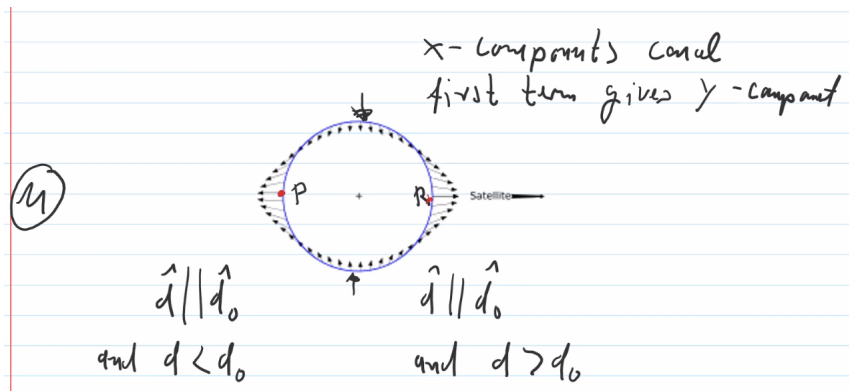 x-components cancel
first term gives y-component
M
P
R
Satellite
d̂ || d̂₀
d̂ || d̂₀
and d < d₀
and d > d₀